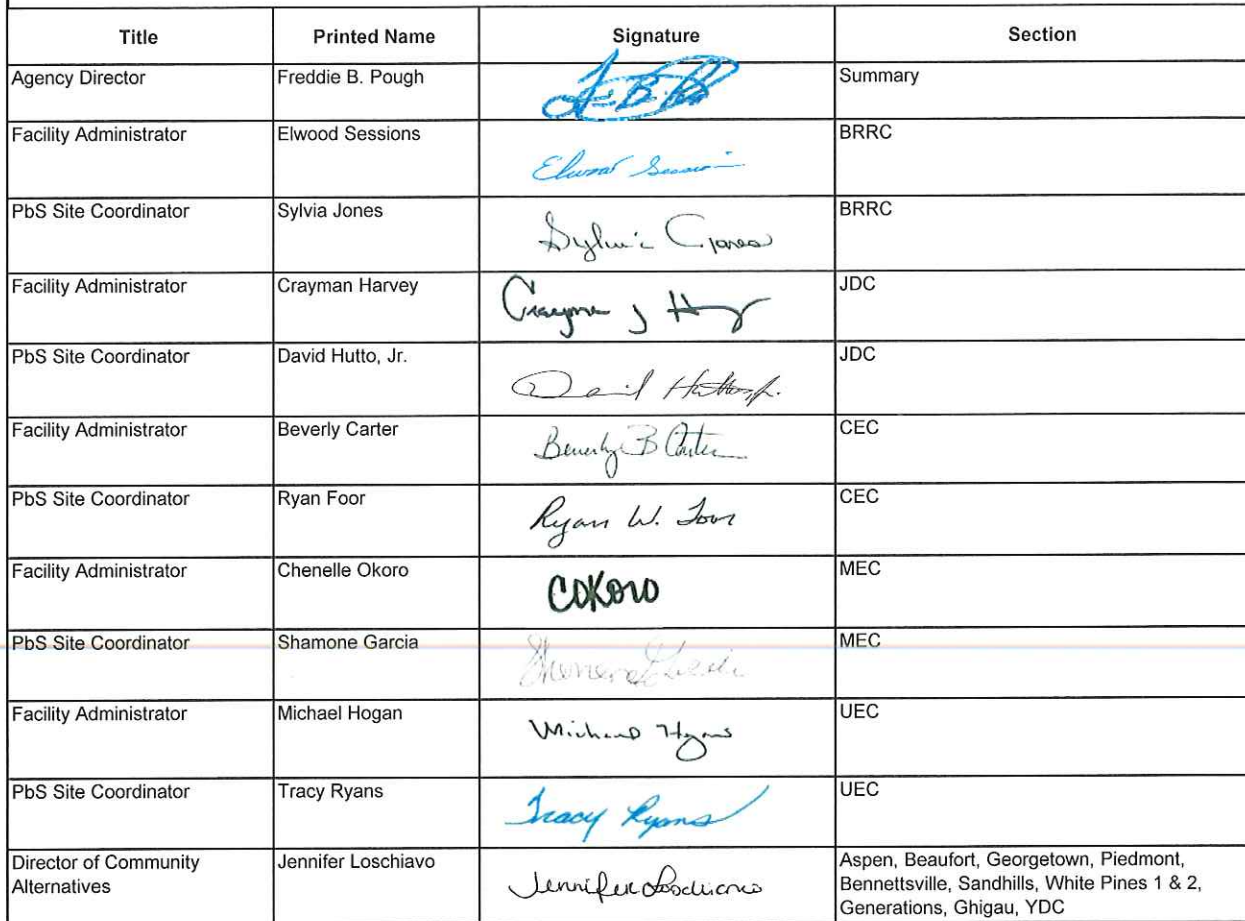 Title Printed Name Signature Section
Agency Director Freddie B. Pough Summary
Facility Administrator Elwood Sessions Elwood Sessions BRRC
PbS Site Coordinator Sylvia Jones Sylvia Jones BRRC
Facility Administrator Crayman Harvey Crayman J H JDC
PbS Site Coordinator David Hutto, Jr. David Hutto, Jr. JDC
Facility Administrator Beverly Carter Beverly B Carter CEC
PbS Site Coordinator Ryan Foor Ryan W. Foor CEC
Facility Administrator Chenelle Okoro COKORO MEC
PbS Site Coordinator Shamone Garcia MEC
Facility Administrator Michael Hogan Michael Hogan UEC
PbS Site Coordinator Tracy Ryans Tracy Ryans UEC
Director of Community Jennifer Loschiavo Jennifer Loschiavo Aspen, Beaufort, Georgetown, Piedmont,
Alternatives Bennettsville, Sandhills, White Pines 1 & 2,
Generations, Ghigau, YDC